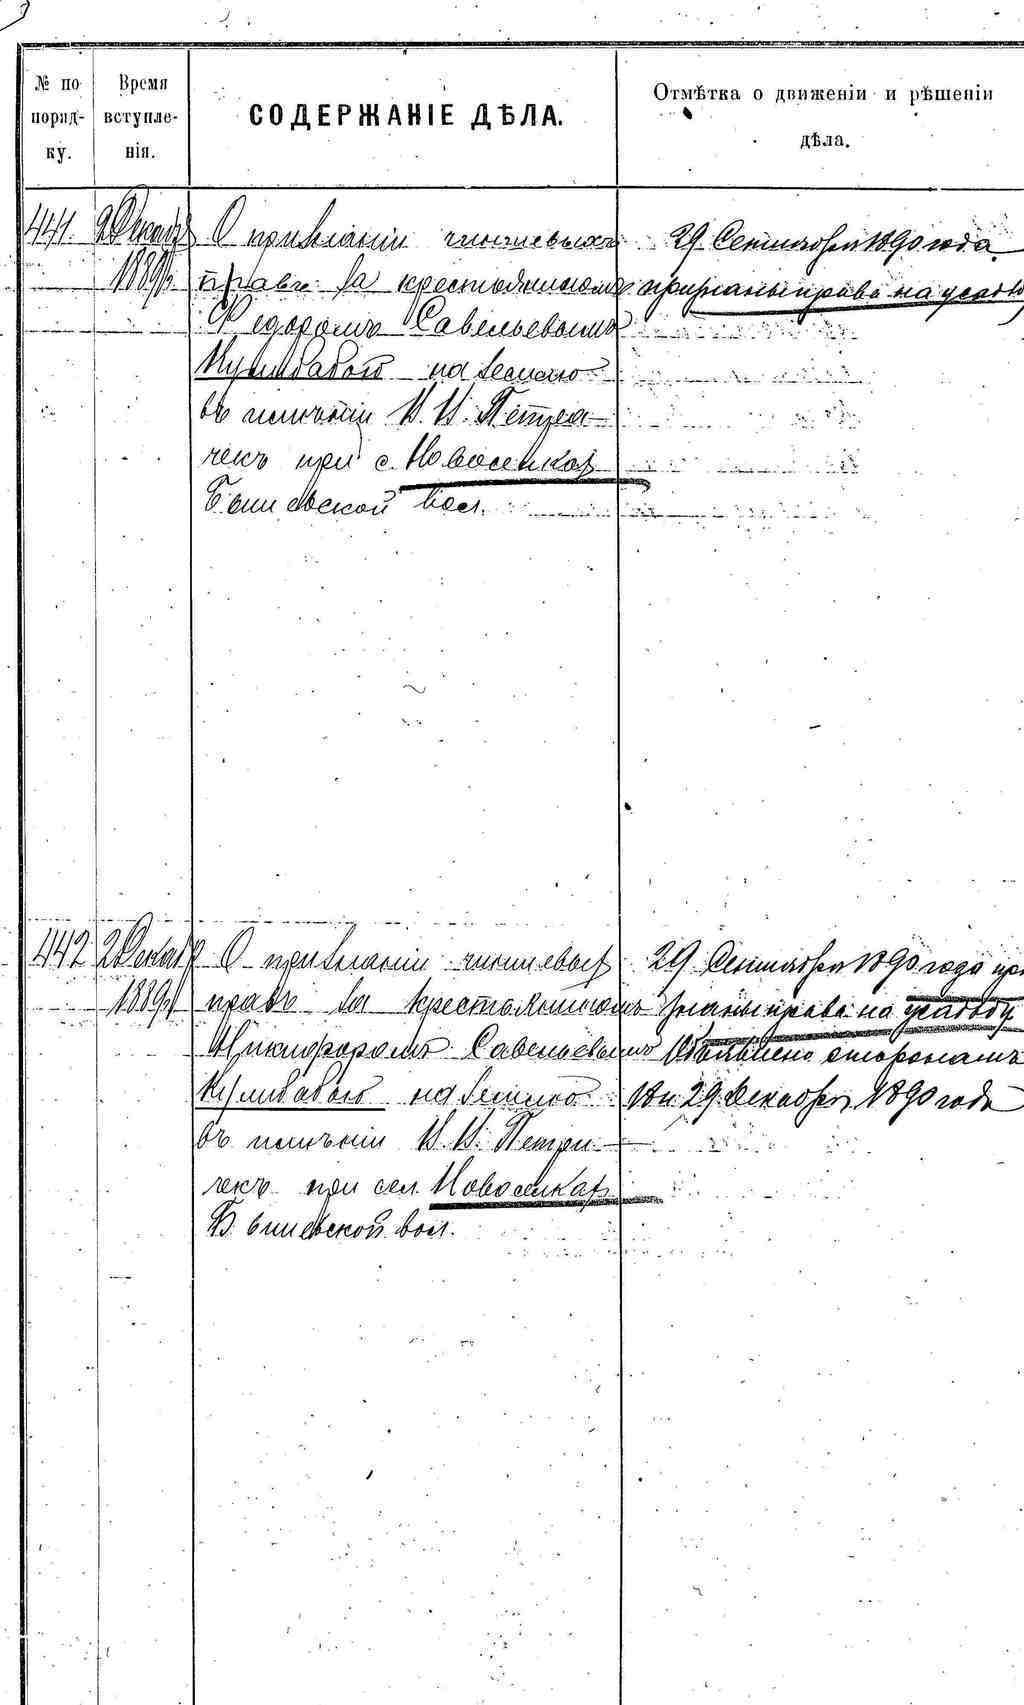 № по поряд- ку.
Время вступле- нія.
СОДЕРЖАНІЕ ДѢЛА.
Отмѣтка о движеніи и рѣшеніи дѣла.
441. 2 Декабр 1889 г.
О признаніи чиншевыхъ
правъ за крестьяниномъ
Федоромъ Савельевымъ
на землю
въ имѣніи
чекъ при с. Новоселкахъ
Бышевской вол.
29 Сентября 1890 года
признаны права на усадьбу
442 2 Декабр 1889 г.
О признаніи чиншевых
правъ за крестьяниномъ
Никифоромъ Савельевымъ
на землю
въ имѣніи
чекъ при сел. Новоселках
Бышевской вол.
29 Сентября 1890 года при
знаны права на усадьбу
Объявлено сторонамъ
18 и 29 Декабря 1890 года